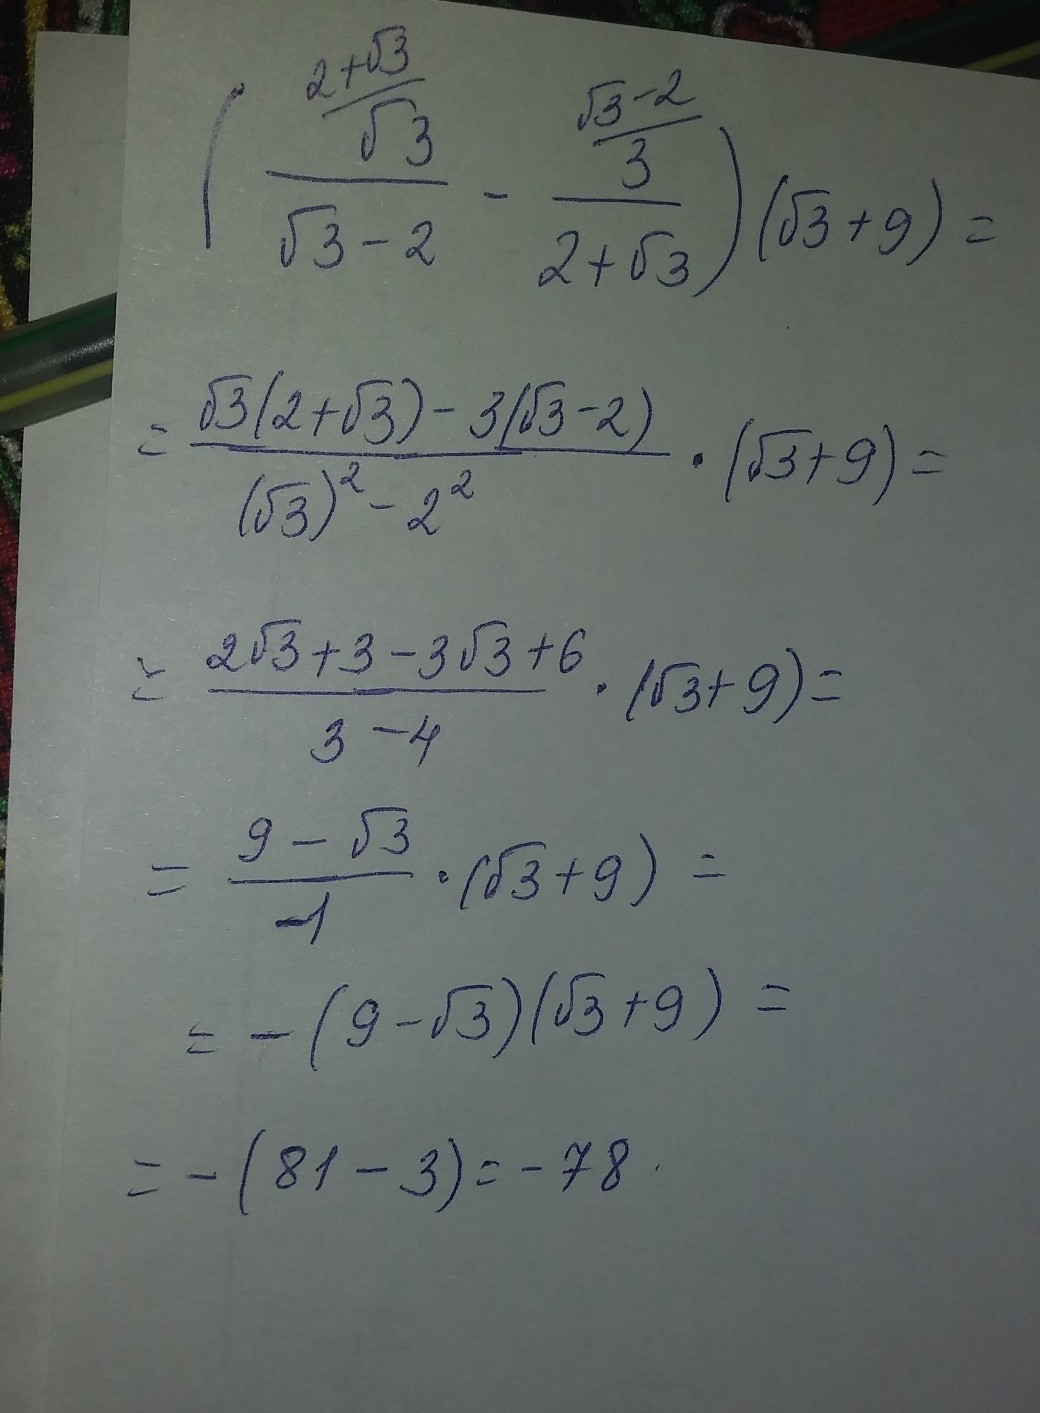 2+√3 √3-2
( √3/(√3-2) - 3/(2+√3) ) (√3+9) =
= (√3(2+√3)-3(√3-2))/((√3)²-2²) · (√3+9) =
= (2√3+3-3√3+6)/(3-4) · (√3+9) =
= (9-√3)/(-1) · (√3+9) =
= -(9-√3)(√3+9) =
= -(81-3) = -78.